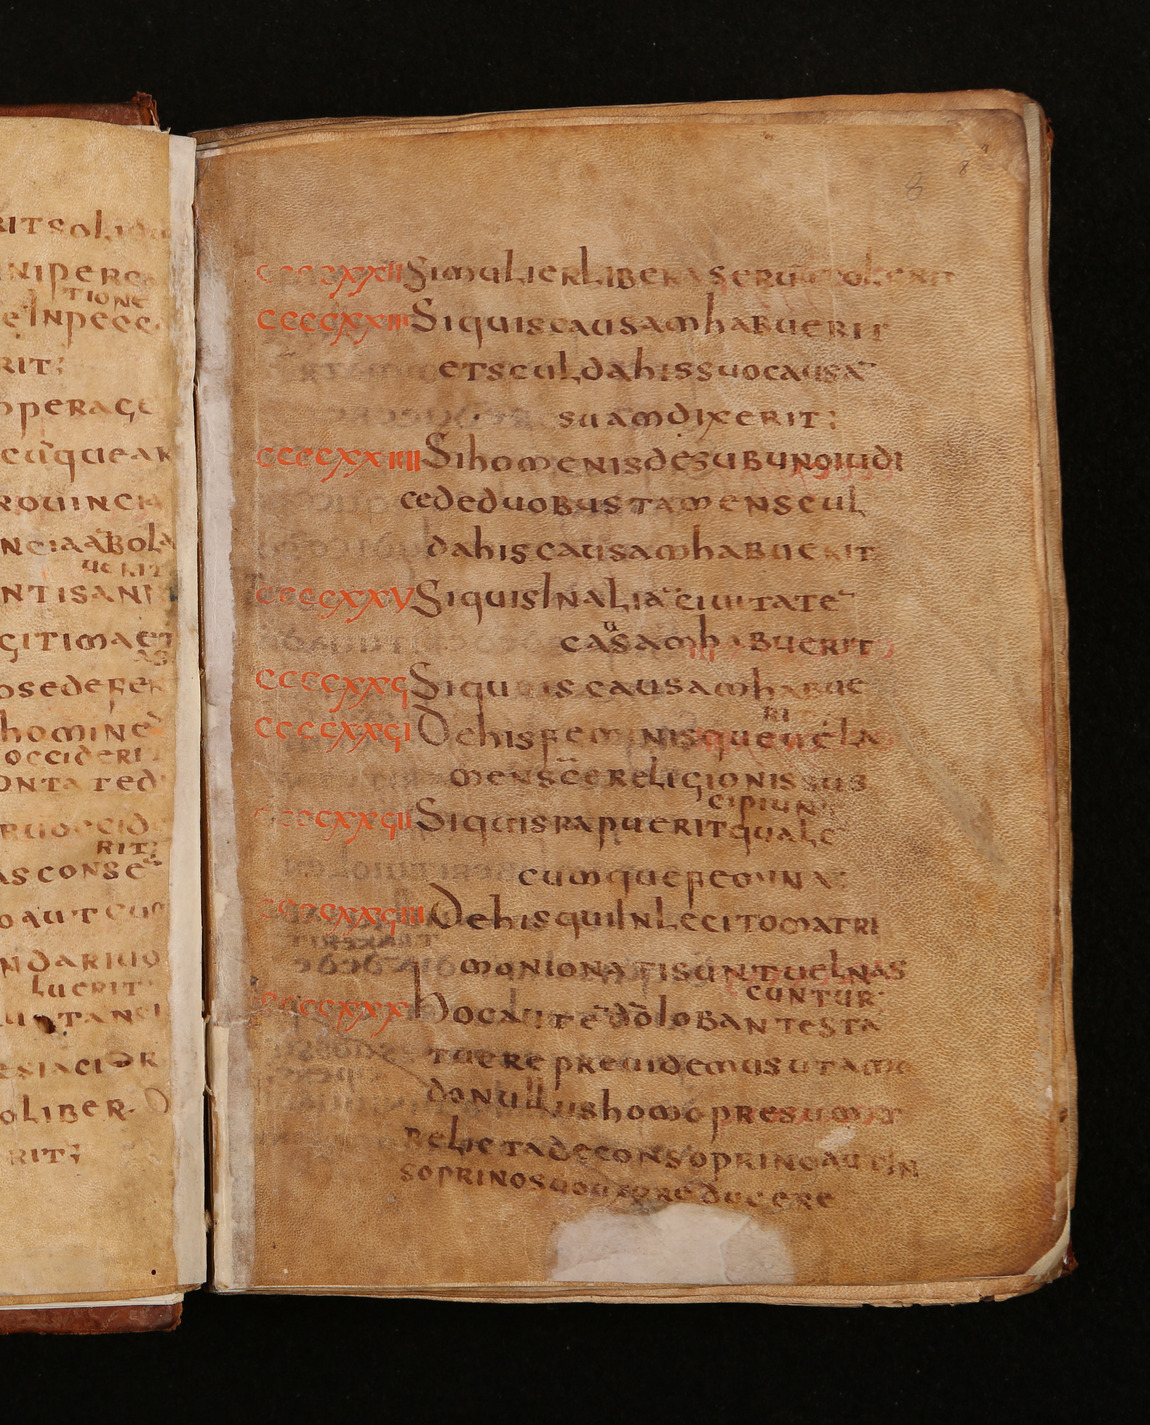 RITSOLID
NIPERE
TIONE
EINPECC
RIT;
OPERAGE
CŪQUEAR
ROUINCI
NCIAABOLA
UERIT
NTISANI
GITIMAET
OSEDEFE
HOMINE
OCCIDERI
ONTATED
RUOCCIDE
RIT;
ASCONSE
OAUTCU
NDARIUO
LUERIT
TAN
ESIACIOR
OLIBER
RIT;
8
CCCCXXII SIMULIERLIBERASERUŪTOLERIT
CCCCXXIII SIQUISCAUSAMHABUERIT
ETSCULDAHISSUOCAUSĀ
SUAMDIXERIT;
CCCCXXIIII SIHOMENISDESUBUNOIUDI
CEDEDUOBUSTAMENSCUL
DAHISCAUSAMHABUERIT
CCCCXXV SIQUISINALIĀCIUITATĒ
CAUSAMHABUERIT
CCCCXXϚ SIQUISCAUSAMHABUE
RI
CCCCXXϚI DEHISFEMINISQUEUELA
MENSCERELIGIONISSUS
CIPIUN
CCCCXXϚII SIQUISRAPUERITQUALE
CUMQUEFEOMINA
CCCCXXϚIII DEHISQUIINLECITOMATRI
MONIONATISUNTUELNAS
CUNTUR
CCCCXXX HOCAUTĒDOLOBANTESTA
TUEREPREUIDEMUSUTAMO
DONULLUSHOMOPRESUMAT
RELICTADECONSOPRINOAUTIN
SOPRINOSUOUXOREDUCERE